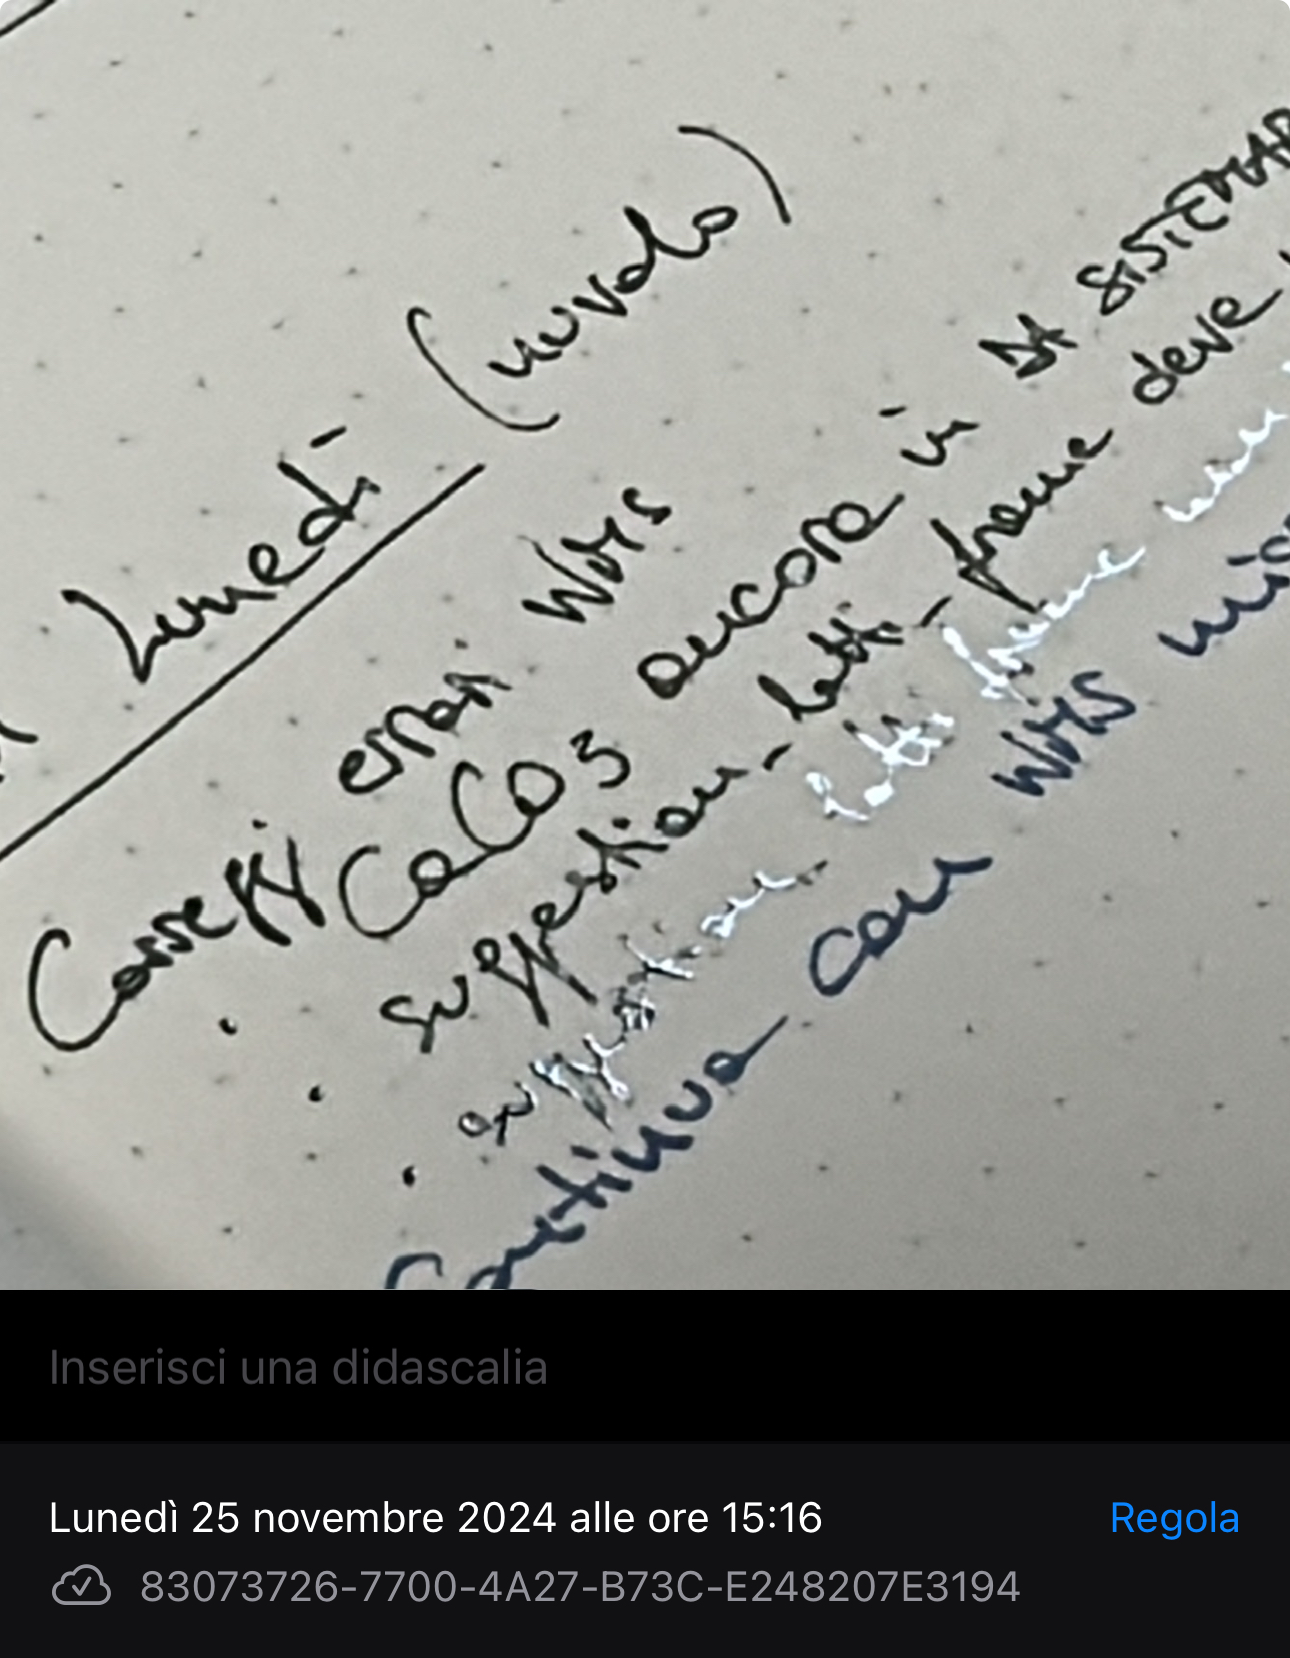 Lunedì (nuvolo)
Correggi errori WMS
CaCO3 ancora in DA SISTEMAR
suggestion_latti_frame deve
latti frame
Continua con WMS
Inserisci una didascalia
Lunedì 25 novembre 2024 alle ore 15:16
Regola
83073726-7700-4A27-B73C-E248207E3194